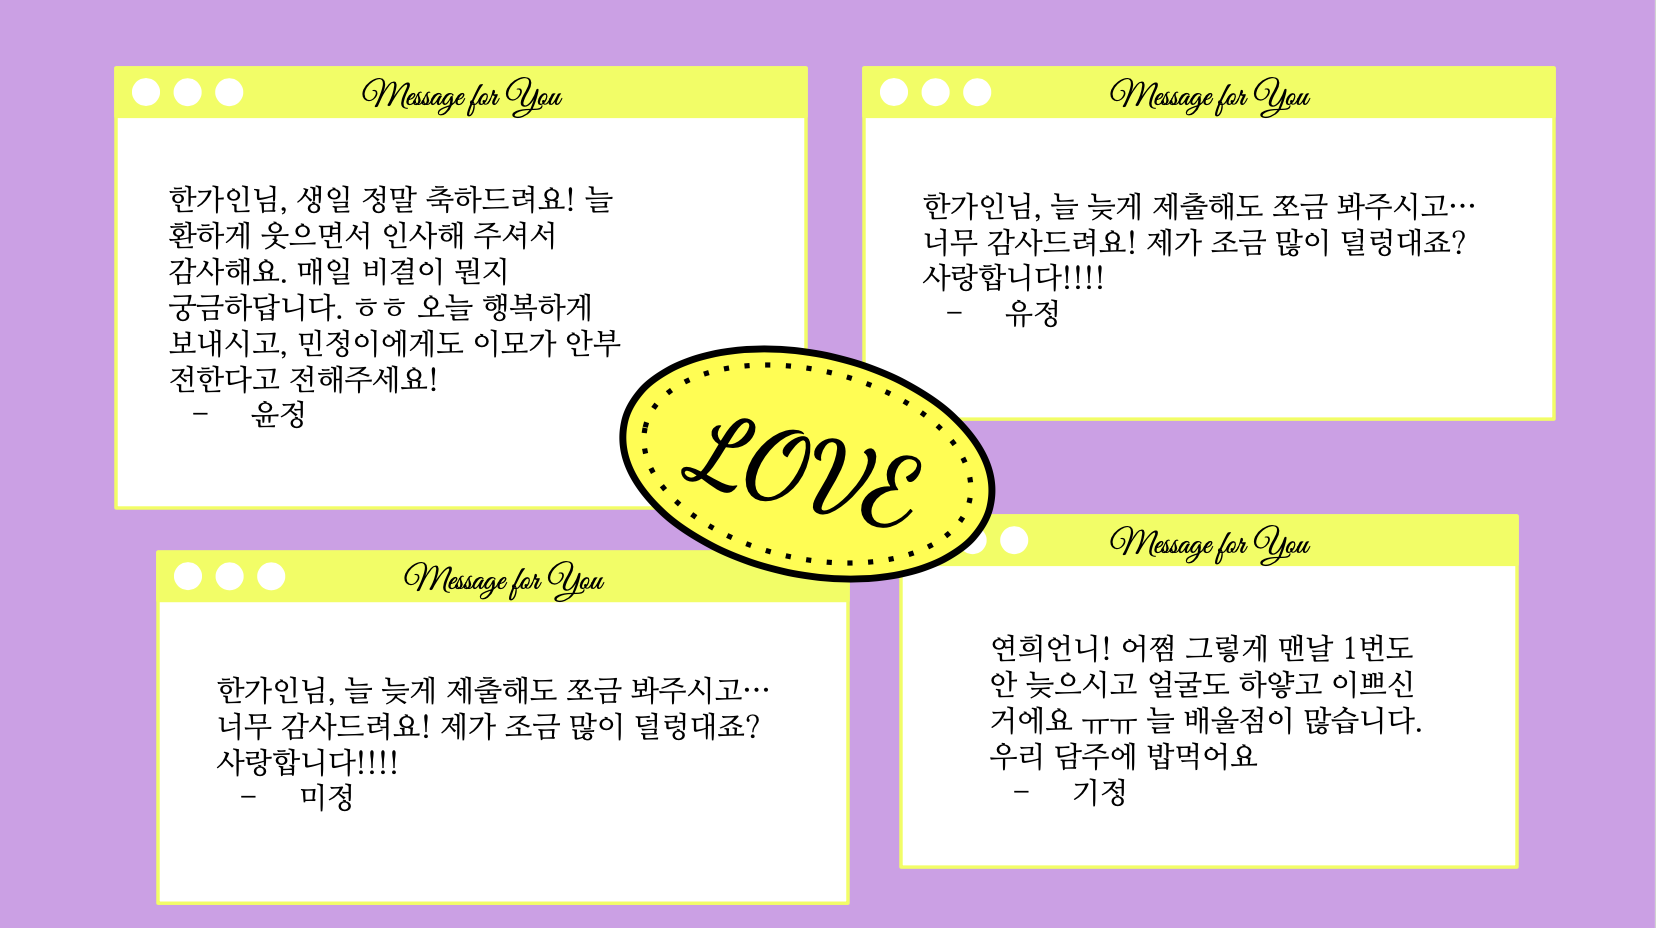 Message for You
한가인님, 생일 정말 축하드려요! 늘
환하게 웃으면서 인사해 주셔서
감사해요. 매일 비결이 뭔지
궁금하답니다. ㅎㅎ 오늘 행복하게
보내시고, 민정이에게도 이모가 안부
전한다고 전해주세요!
- 윤정
Message for You
한가인님, 늘 늦게 제출해도 쪼금 봐주시고…
너무 감사드려요! 제가 조금 많이 덜렁대죠?
사랑합니다!!!!
- 유정
LOVE
Message for You
한가인님, 늘 늦게 제출해도 쪼금 봐주시고…
너무 감사드려요! 제가 조금 많이 덜렁대죠?
사랑합니다!!!!
- 미정
Message for You
연희언니! 어쩜 그렇게 맨날 1번도
안 늦으시고 얼굴도 하얗고 이쁘신
거에요 ㅠㅠ 늘 배울점이 많습니다.
우리 담주에 밥먹어요
- 기정